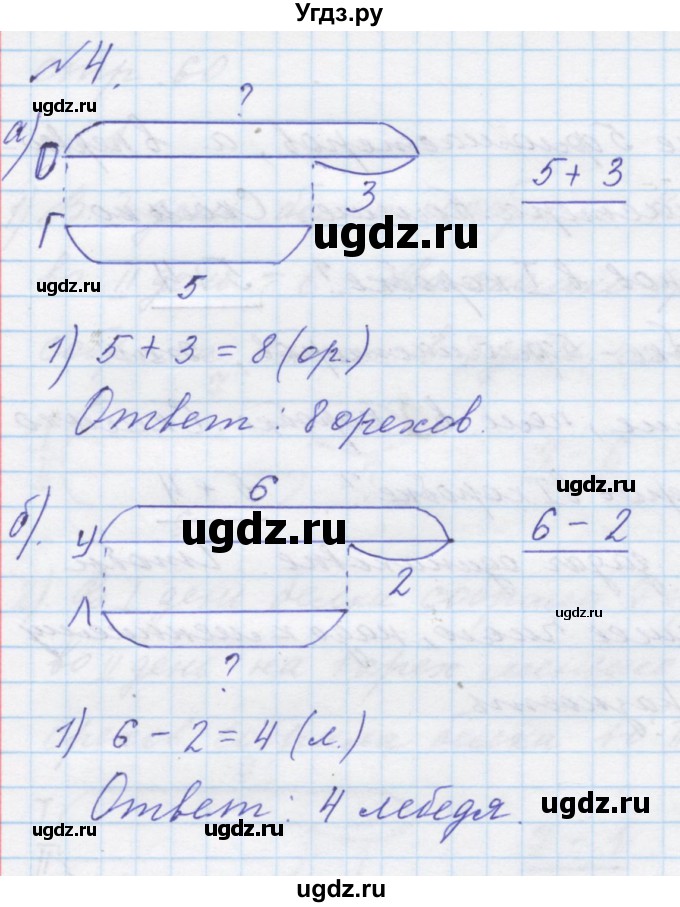 Угдз.ру
№4.
ugdz.ru
ugdz.ru
а)
?
О
3
5 + 3
Г
ugdz.ru
ugdz.ru
5
1) 5 + 3 = 8 (ор.)
Ответ : 8 орехов.
б).
6
ugdz.ru
ugdz.ru
У
6 - 2
2
Л
ugdz.ru
?
1) 6 - 2 = 4 (л.)
Ответ : 4 лебедя.
ugdz.ru
ugdz.ru
ugdz.ru
ugdz.ru